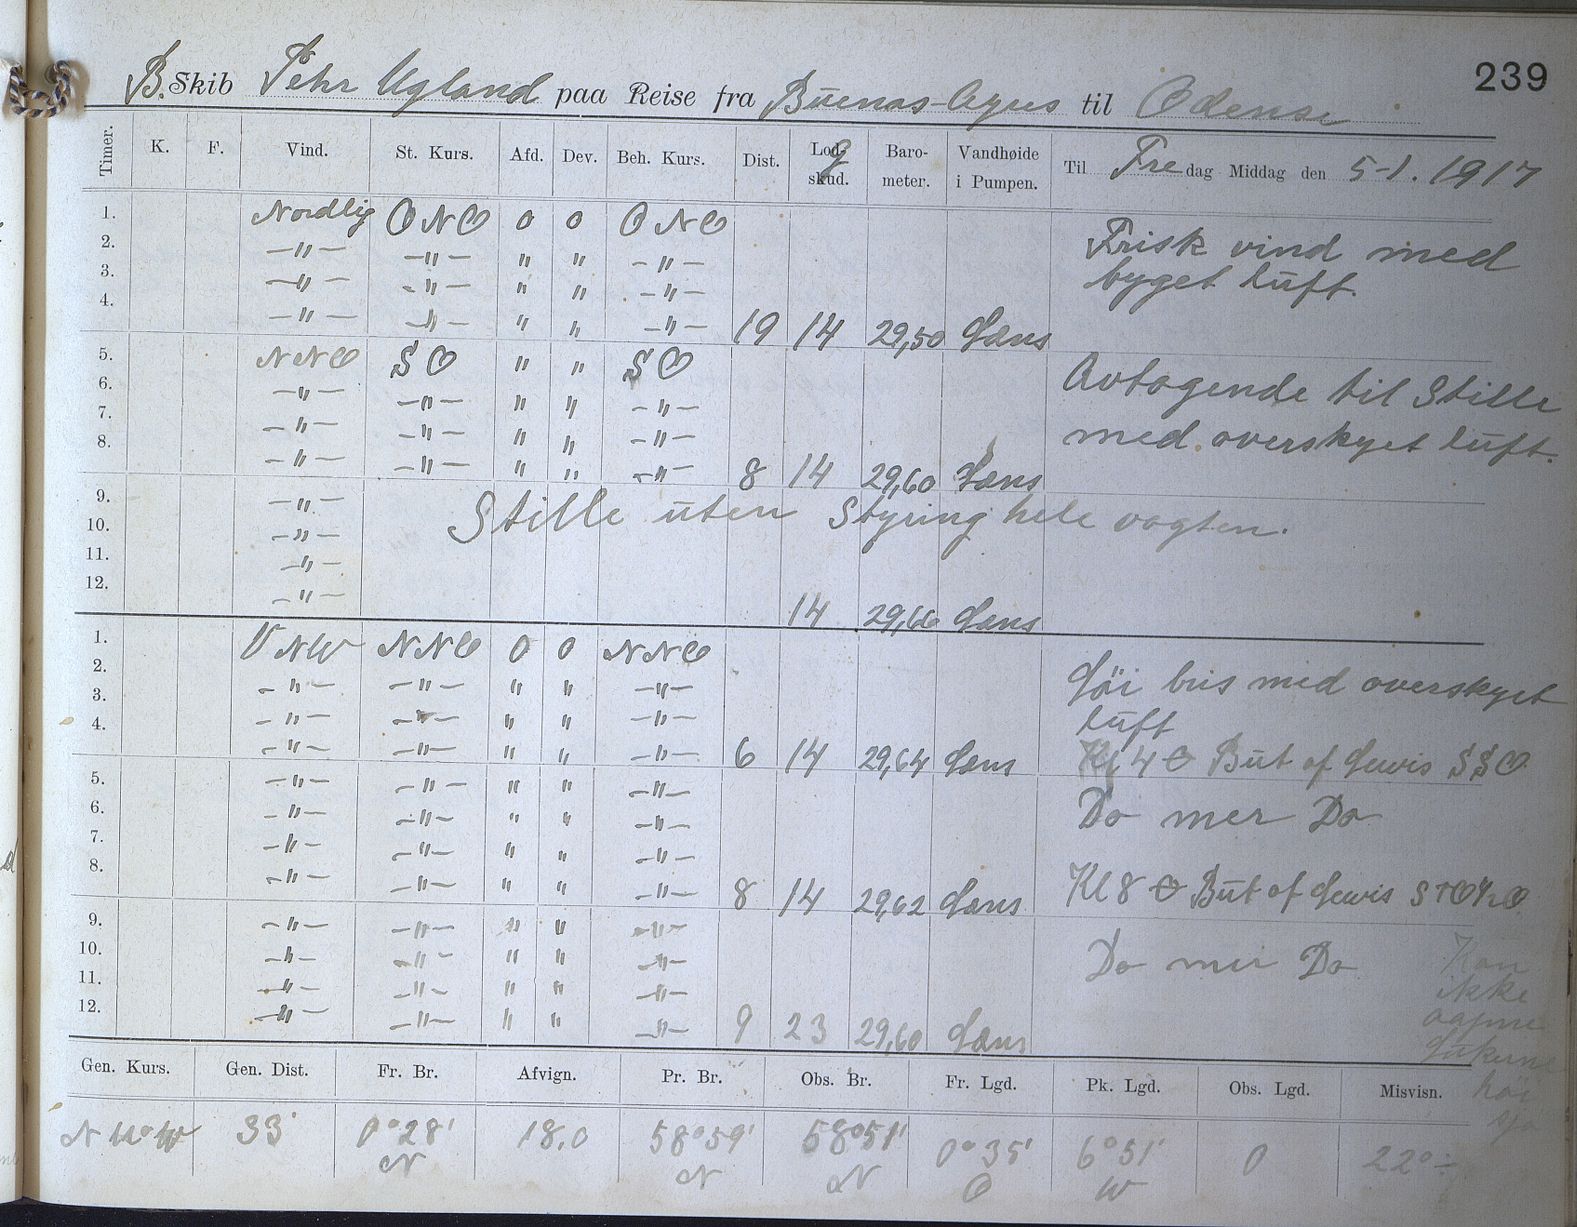 239
B. Skib Pehr Ugland paa Reise fra Buenos-Ayres til Odense
Timer. K. F. Vind. St. Kurs. Afd. Dev. Beh. Kurs. Dist. Lodskud. Barometer. Vandhøide i Pumpen. Til Fredag Middag den 5-1. 1917
1. Nordlig ONO 0 0 ONO
2. -"- -"- " " -"- Frisk vind med
3. -"- -"- " " -"- byget luft.
4. -"- -"- " " -"- 19 14 29,50 Læns
5. NNO SO " " SO
6. -"- -"- " " -"- Avtagende til Stille
7. -"- -"- " " -"- med overskyet luft.
8. -"- -"- " " -"- 8 14 29,60 Læns
9. -"- Stille uten Styring hele vagten.
10. -"-
11. -"-
12. -"- 14 29,66 Læns
1. VNW NNO 0 0 NNO
2. -"- -"- " " -"- Løi bris med overskyet
3. -"- -"- " " -"- luft
4. -"- -"- " " -"- 6 14 29,64 Læns Kl 4 But af Lewis SSO
5. -"- -"- " " -"-
6. -"- -"- " " -"- Do mer Do
7. -"- -"- " " -"-
8. -"- -"- " " -"- 8 14 29,62 Læns Kl 8 But of Lewis
9. -"- -"- " " -"-
10. -"- -"- " " -"- Do mer Do Kan
11. -"- -"- " " -"- ikke
12. -"- -"- " " -"- 9 23 29,60 Læns
Lukerne
høi
sjø
Gen. Kurs. Gen. Dist. Fr. Br. Afvign. Pr. Br. Obs. Br. Fr. Lgd. Pk. Lgd. Obs. Lgd. Misvisn.
33' 0°28' N 18,0 58°59' N 58°51' N 0°35' O 6°51' W 0 22°